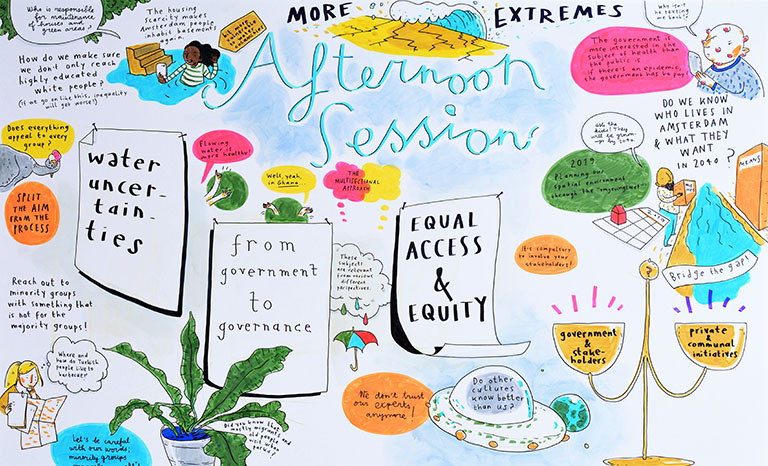 Who is responsible
for maintenance
of houses and
green areas?
The housing
scarcity makes
Amsterdam people
inhabit basements
MORE
EXTREMES
Afternoon
Session
How do we make sure
we don't only reach
highly educated
white people?
(If we go on like this, inequality
will get worse!)
Why isn't
he texting
me back?
The government is
more interested in the
subject of health than
the public is
If there's an epidemic,
the government has to pay!
DO WE KNOW
WHO LIVES IN
AMSTERDAM
& WHAT THEY
WANT
IN 2040?
Does everything
appeal to every
group?
SPLIT
THE AIM
FROM THE
PROCESS
water
uncer-
tain-
ties
Flowing
water is
more healthy!
Well, yeah,
in Ghana...
THE
MULTISECTIONAL
APPROACH
from
government
to
governance
These
subjects
are relevant
from various
different
perspectives
EQUAL
ACCESS
&
EQUITY
Ask the
kids! They
will be grown-
up by 2040
2019
Planning our
spatial environment
through the
MEANS
CITY
It's compulsory
to involve your
stakeholders!
Bridge the gap!
?
government
&
stake-
holders
private
&
communal
initiatives
Reach out to
minority groups
with something that
is not for the
majority groups!
Where and
how do Turkish
people like to
barbecue?
Let's be careful
with our words;
minority groups
Did you know that
mostly migrants
and old people
visit urban
parks?
We don't trust
our experts
anymore!
Do other
cultures
know better
than us?